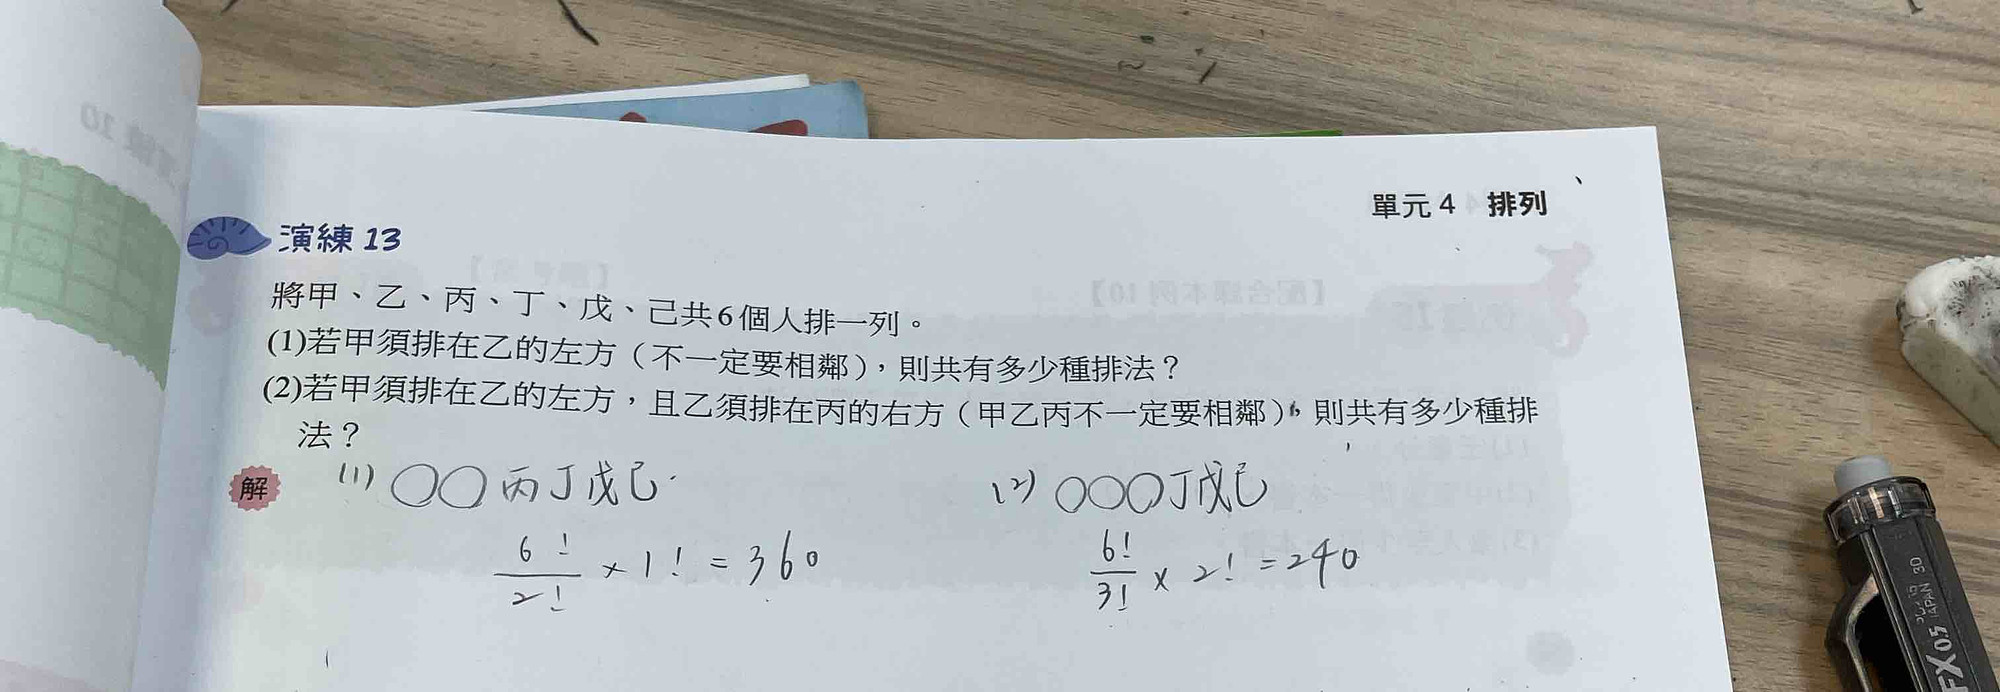 單元 4 排列
演練 13
將甲、乙、丙、丁、戊、己共6個人排一列。
(1)若甲須排在乙的左方（不一定要相鄰），則共有多少種排法？
(2)若甲須排在乙的左方，且乙須排在丙的右方（甲乙丙不一定要相鄰），則共有多少種排
法？
解
(1) ○○丙丁戊己
6!/2! × 1! = 360
(2) ○○○丁戊己
6!/3! × 2! = 240
【配合課本例 10】
JAPAN 30
FX 0.5